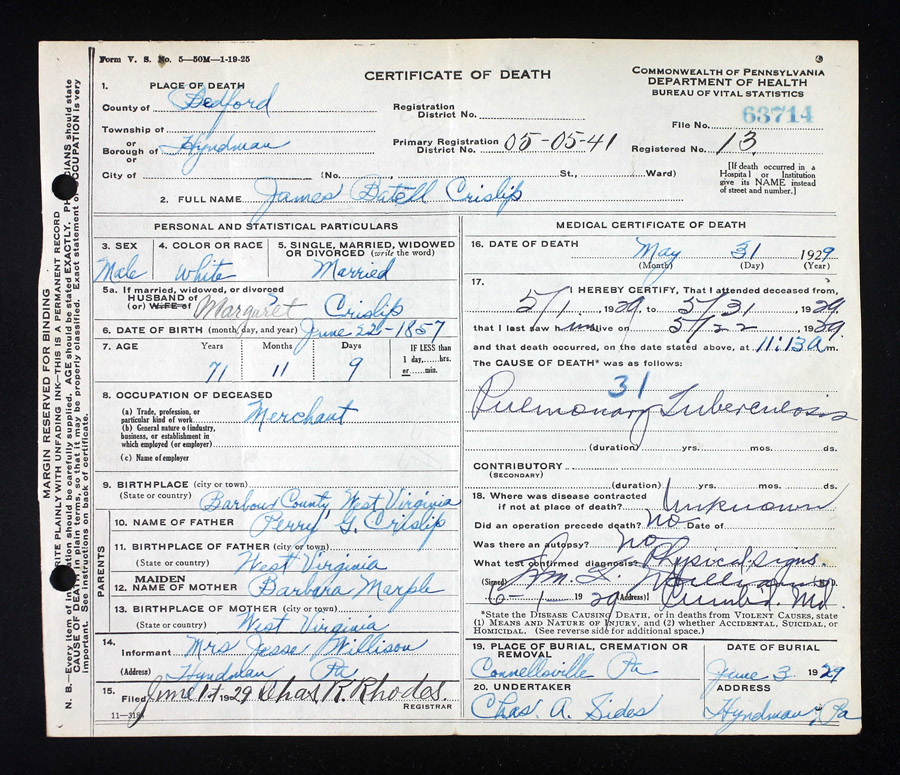 Form V. S. No. 5—50M—1-19-25
CERTIFICATE OF DEATH
COMMONWEALTH OF PENNSYLVANIA
DEPARTMENT OF HEALTH
BUREAU OF VITAL STATISTICS
1. PLACE OF DEATH
County of Bedford
Township of
or
Borough of Hyndman
or
City of
Registration
District No.
Primary Registration
District No. 05-05-41
(No. , St., Ward)
63714
File No.
Registered No. 13
[If death occurred in a
Hospital or Institution
give its NAME instead
of street and number.]
2. FULL NAME James Batell Crislip
PERSONAL AND STATISTICAL PARTICULARS
3. SEX
Male
4. COLOR OR RACE
White
5. SINGLE, MARRIED, WIDOWED
OR DIVORCED (write the word)
Married
5a. If married, widowed, or divorced
HUSBAND of
(or) WIFE of Margaret Crislip
6. DATE OF BIRTH (month, day, and year) June 22-1857
7. AGE Years Months Days
71 11 9
IF LESS than
1 day,....hrs.
or....min.
8. OCCUPATION OF DECEASED
(a) Trade, profession, or
particular kind of work Merchant
(b) General nature of industry,
business, or establishment in
which employed (or employer)
(c) Name of employer
9. BIRTHPLACE (city or town)
(State or country) Barbour County, West Virginia
PARENTS
10. NAME OF FATHER Perry G. Crislip
11. BIRTHPLACE OF FATHER (city or town)
(State or country) West Virginia
12. MAIDEN
NAME OF MOTHER Barbara Marple
13. BIRTHPLACE OF MOTHER (city or town)
(State or country) West Virginia
14.
Informant Mrs Jesse Willison
(Address) Hyndman Pa
15.
Filed June 1st 1929 Chas. R. Rhodes.
REGISTRAR
11—3184
MEDICAL CERTIFICATE OF DEATH
16. DATE OF DEATH
May 31 1929
(Month) (Day) (Year)
17.
I HEREBY CERTIFY, That I attended deceased from
5/1, 1929, to 5/31, 1929,
that I last saw him alive on 5/22, 1929,
and that death occurred, on the date stated above, at 11:13 a m.
The CAUSE OF DEATH* was as follows:
31
Pulmonary Tuberculosis
(duration) yrs. mos. ds.
CONTRIBUTORY
(SECONDARY)
(duration) yrs. mos. ds.
18. Where was disease contracted
if not at place of death? Unknown
Did an operation precede death? No Date of
Was there an autopsy? No
What test confirmed diagnosis? Physical signs
(Signed) M.D.
6-1 1929 (Address) Cumb'd, Md.
*State the DISEASE CAUSING DEATH, or in deaths from VIOLENT CAUSES, state
(1) MEANS AND NATURE OF INJURY, and (2) whether ACCIDENTAL, SUICIDAL, or
HOMICIDAL. (See reverse side for additional space.)
19. PLACE OF BURIAL, CREMATION OR
REMOVAL
Connellsville Pa
DATE OF BURIAL
June 3 1929
20. UNDERTAKER
Chas. A. Sides
ADDRESS
Hyndman, Pa
MARGIN RESERVED FOR BINDING
WRITE PLAINLY WITH UNFADING INK—THIS IS A PERMANENT RECORD
N. B.—Every item of information should be carefully supplied. AGE should be stated EXACTLY. PHYSICIANS should state
CAUSE OF DEATH in plain terms, so that it may be properly classified. Exact statement of OCCUPATION is very
important. See instructions on back of certificate.